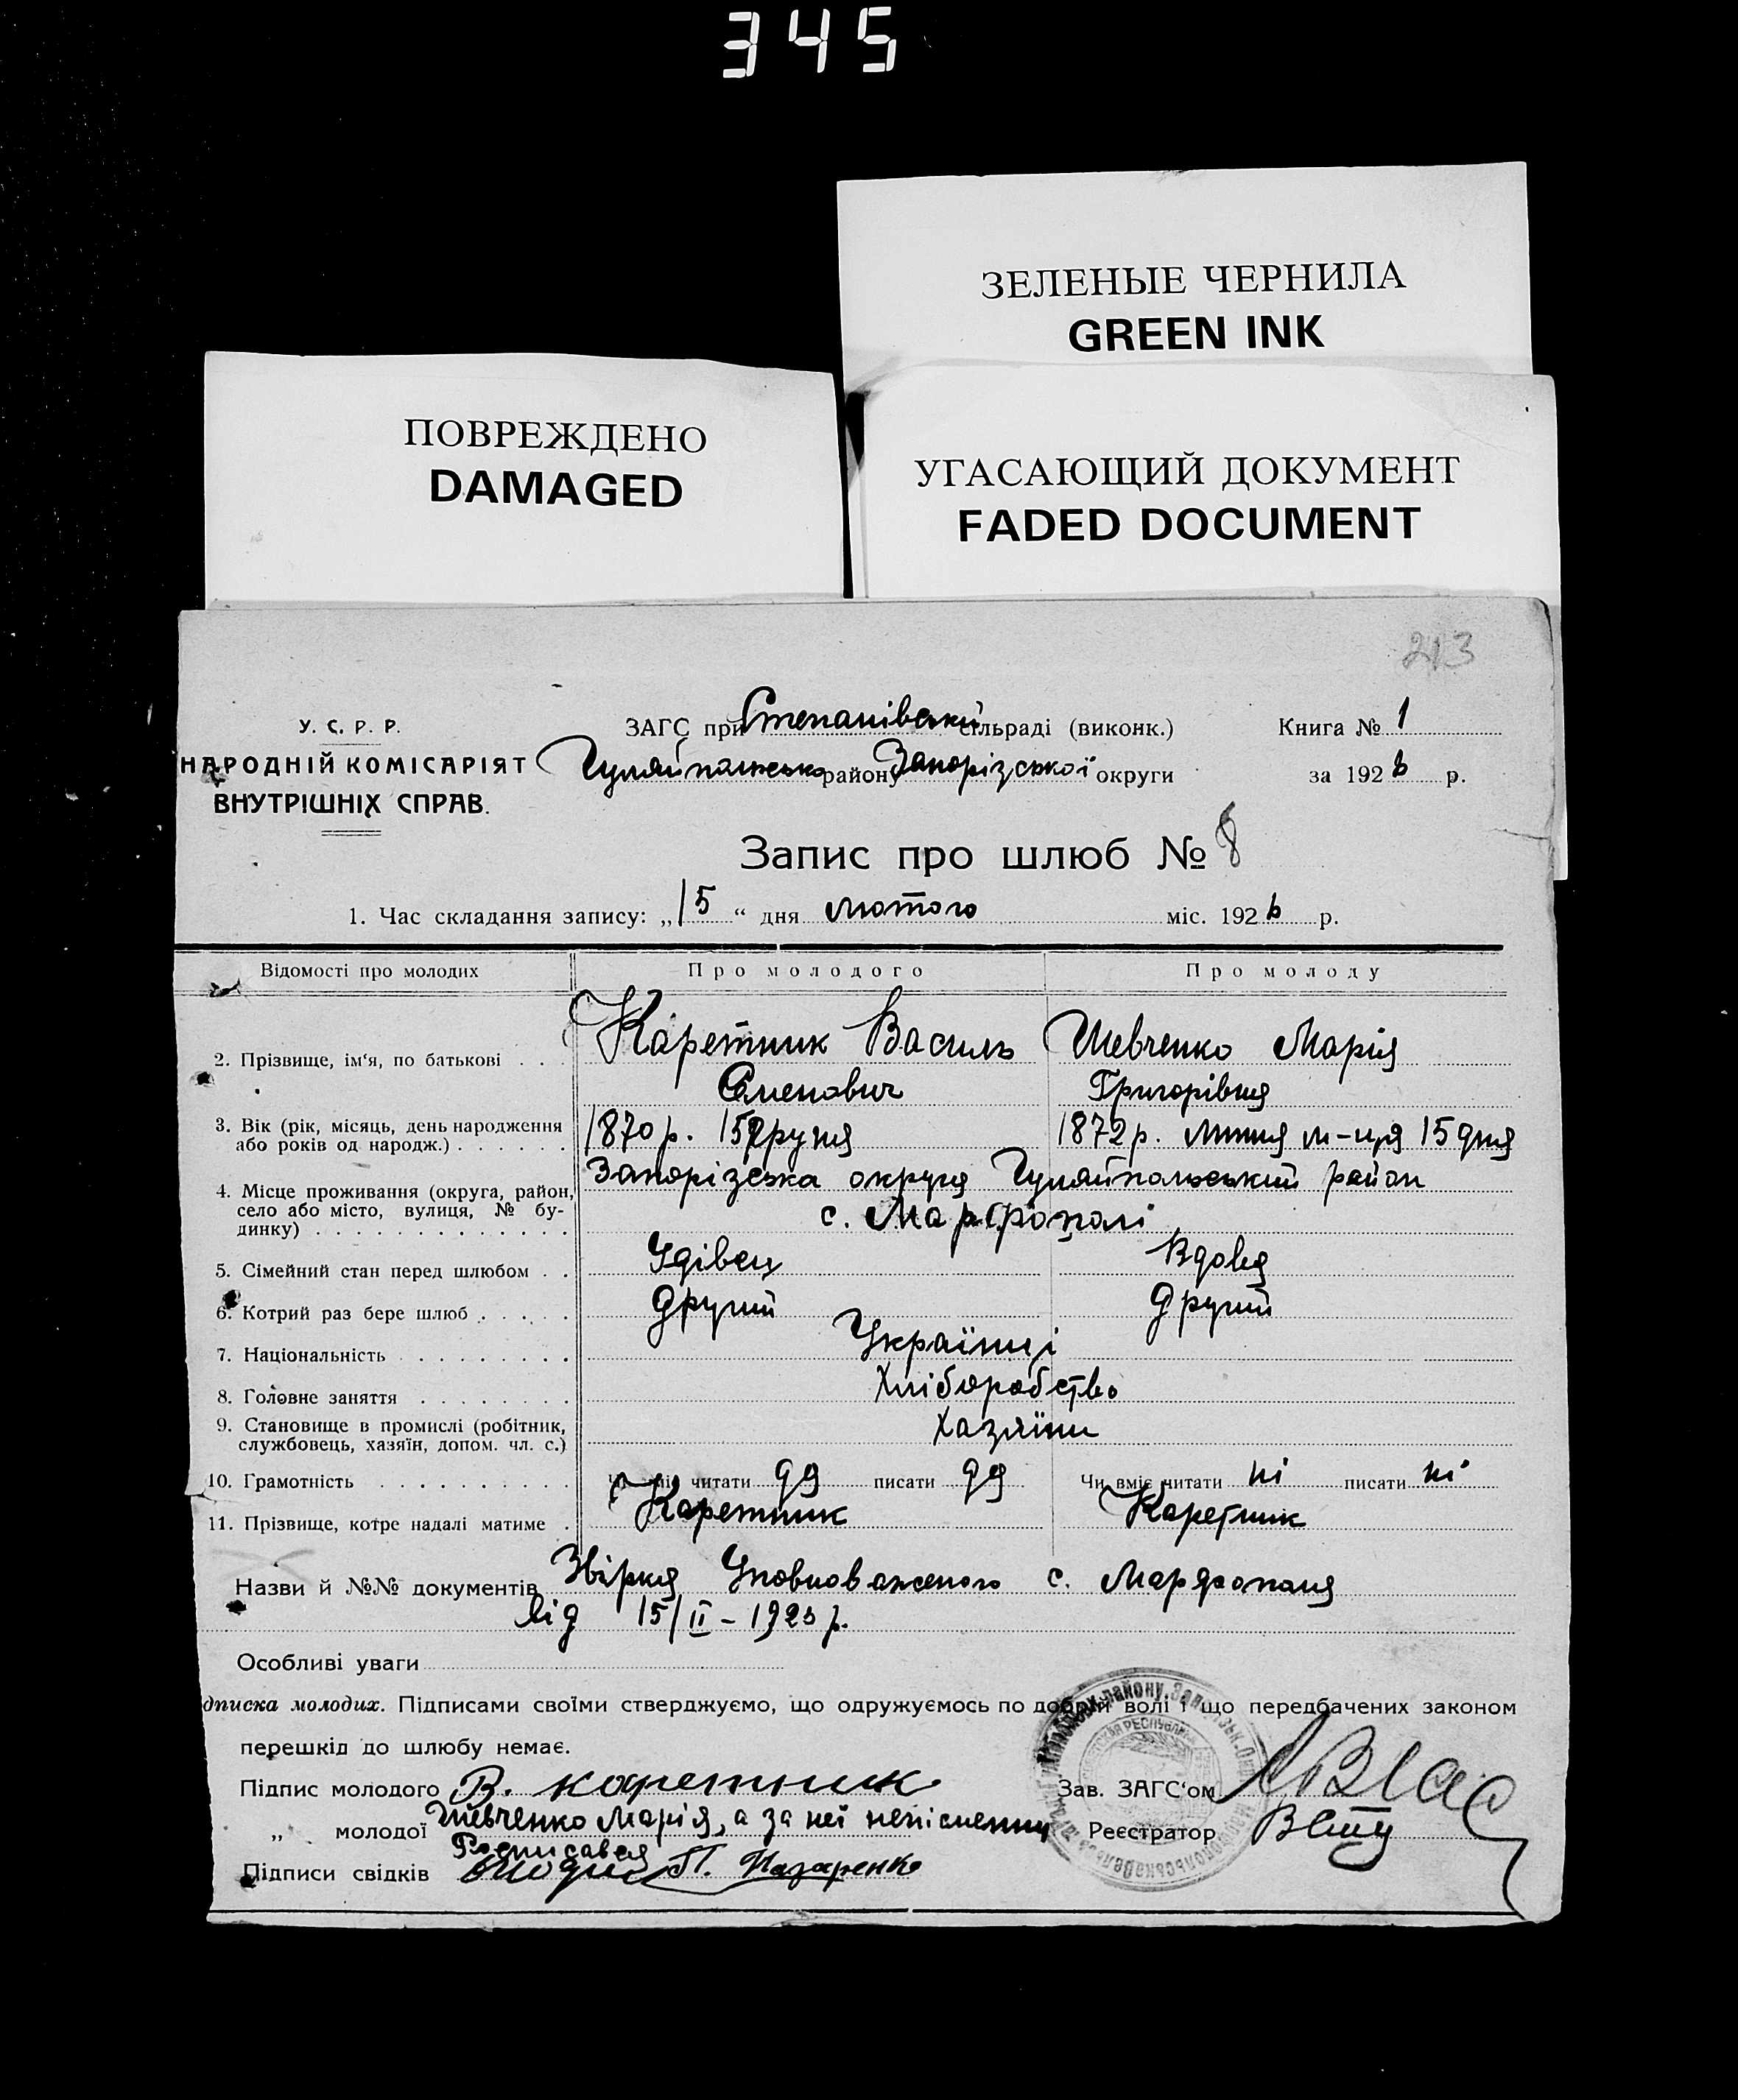 345
ЗЕЛЕНЫЕ ЧЕРНИЛА
GREEN INK
ПОВРЕЖДЕНО
DAMAGED
УГАСАЮЩИЙ ДОКУМЕНТ
FADED DOCUMENT
213
У. С. Р. Р.
НАРОДНІЙ КОМІСАРІЯТ
ВНУТРІШНІХ СПРАВ.
ЗАГС при Степанівській сільраді (виконк.)
Гуляйпольсько району Запорізської округи
Книга № 1
за 192 р.
Запис про шлюб № 8
1. Час складання запису: „15“ дня лютого міс. 192 р.
Відомості про молодих Про молодого Про молоду
2. Прізвище, ім'я, по батькові . . . Каретник Василь Шевченко Марія
Семенович Григорівна
3. Вік (рік, місяць, день народження або років од народж.) . . . . . . 1870 р. 15 грудня 1872 р. липня м-ця 15 дня
4. Місце проживання (округа, район, село або місто, вулиця, № будинку) . . . . . . . . . . . . . Запорізська округа Гуляйпольський район
с. Марфополі
5. Сімейний стан перед шлюбом . . Удівец Вдова
6. Котрий раз бере шлюб . . . . . другий другий
7. Національність . . . . . . . . Українці
8. Головне заняття . . . . . . . . Хліборобство
9. Становище в промислі (робітник, службовець, хазяїн, допом. чл. с.) Хазяїни
10. Грамотність . . . . . . . . . . читати да писати да Чи вміє читати ні писати ні
11. Прізвище, котре надалі матиме . Каретник Каретник
Назви й №№ документів Звірка Уповноваженого с. Марфополя
від 15/II - 192 р.
Особливі уваги
дписка молодих. Підписами своїми стверджуємо, що одружуємось по добрій волі і що передбачених законом
перешкід до шлюбу немає.
Підпис молодого В. каретник Зав. ЗАГС'ом
„ молодої Шевченко Марія, а за неї неписменну Росписався Реєстратор
Підписи свідків П. Назаренко